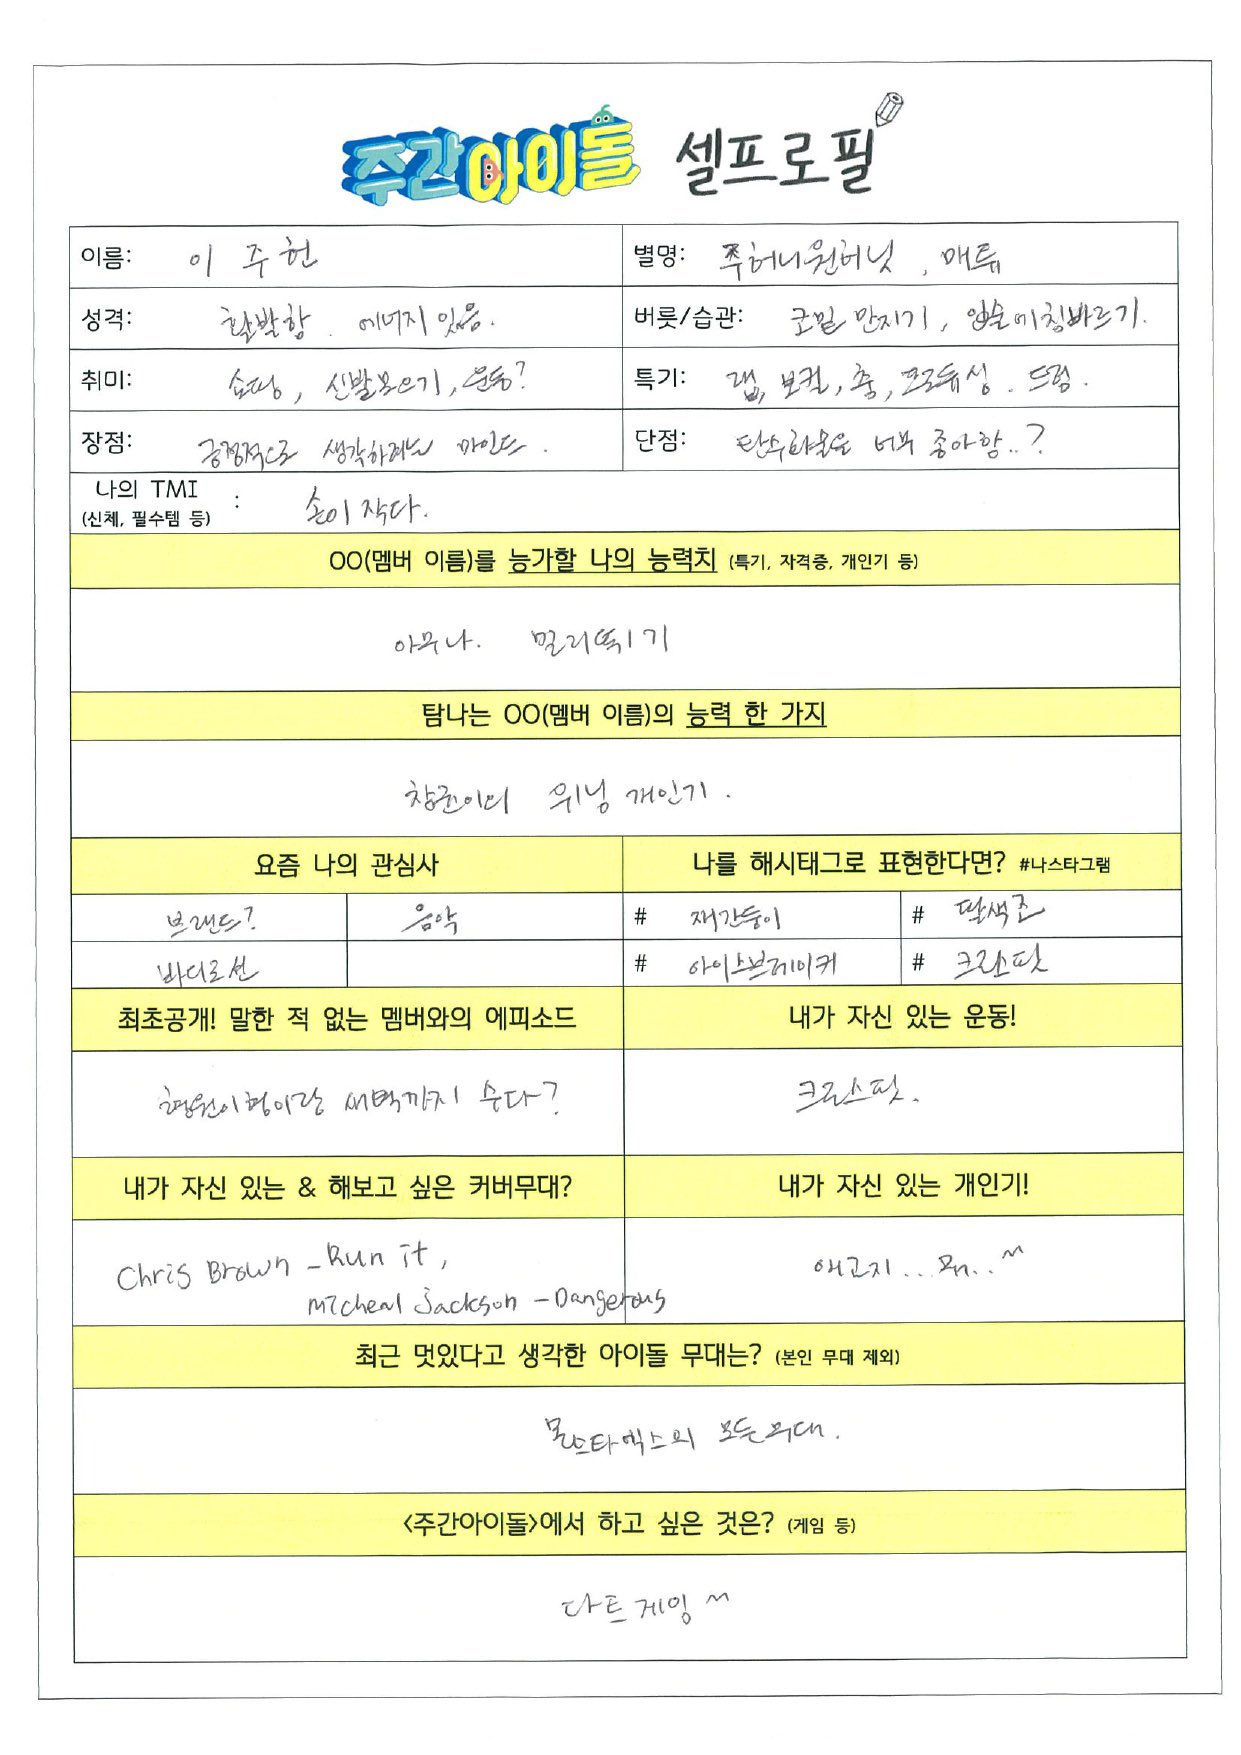 주간아이돌 셀프로필
이름: 이 주 헌
별명: 쭈허니워허닛, 매튜
성격: 활발함. 에너지 있음.
버릇/습관: 코밑 만지기, 입술에 침바르기.
취미: 쇼핑, 신발모으기, 운동?
특기: 랩, 보컬, 춤, 프로듀싱. 드럼.
장점: 긍정적으로 생각하려는 마인드.
단점: 탄수화물을 너무 좋아함..?
나의 TMI : 손이 작다.
(신체, 필수템 등)
OO(멤버 이름)를 능가할 나의 능력치 (특기, 자격증, 개인기 등)
아무나. 멀리뛰기
탐나는 OO(멤버 이름)의 능력 한 가지
창균이의 위닝 개인기.
요즘 나의 관심사
브랜드? 음악
바디로션
나를 해시태그로 표현한다면? #나스타그램
# 재간둥이 # 딸색존
# 아이스브레이커 # 크로스핏
최초공개! 말한 적 없는 멤버와의 에피소드
형원이형이랑 새벽까지 수다?
내가 자신 있는 운동!
크로스핏.
내가 자신 있는 & 해보고 싶은 커버무대?
Chris Brown - Run it,
Micheal Jackson - Dangerous
내가 자신 있는 개인기!
애교지...뭐..~
최근 멋있다고 생각한 아이돌 무대는? (본인 무대 제외)
몬스타엑스의 모든무대.
<주간아이돌>에서 하고 싶은 것은? (게임 등)
다트게임~